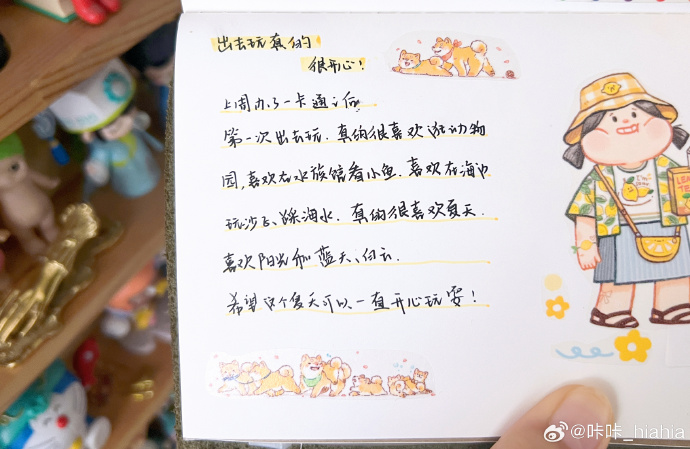 出去玩真的
很开心！
上周办了一卡通之后
第一次出去玩．真的很喜欢逛动物
园，喜欢在水族馆看小鱼．喜欢在海边
玩沙子、踩海水．真的很喜欢夏天．
喜欢阳光和蓝天、白云．
希望这个夏天可以一直开心玩耍！
@咔咔_hiahia